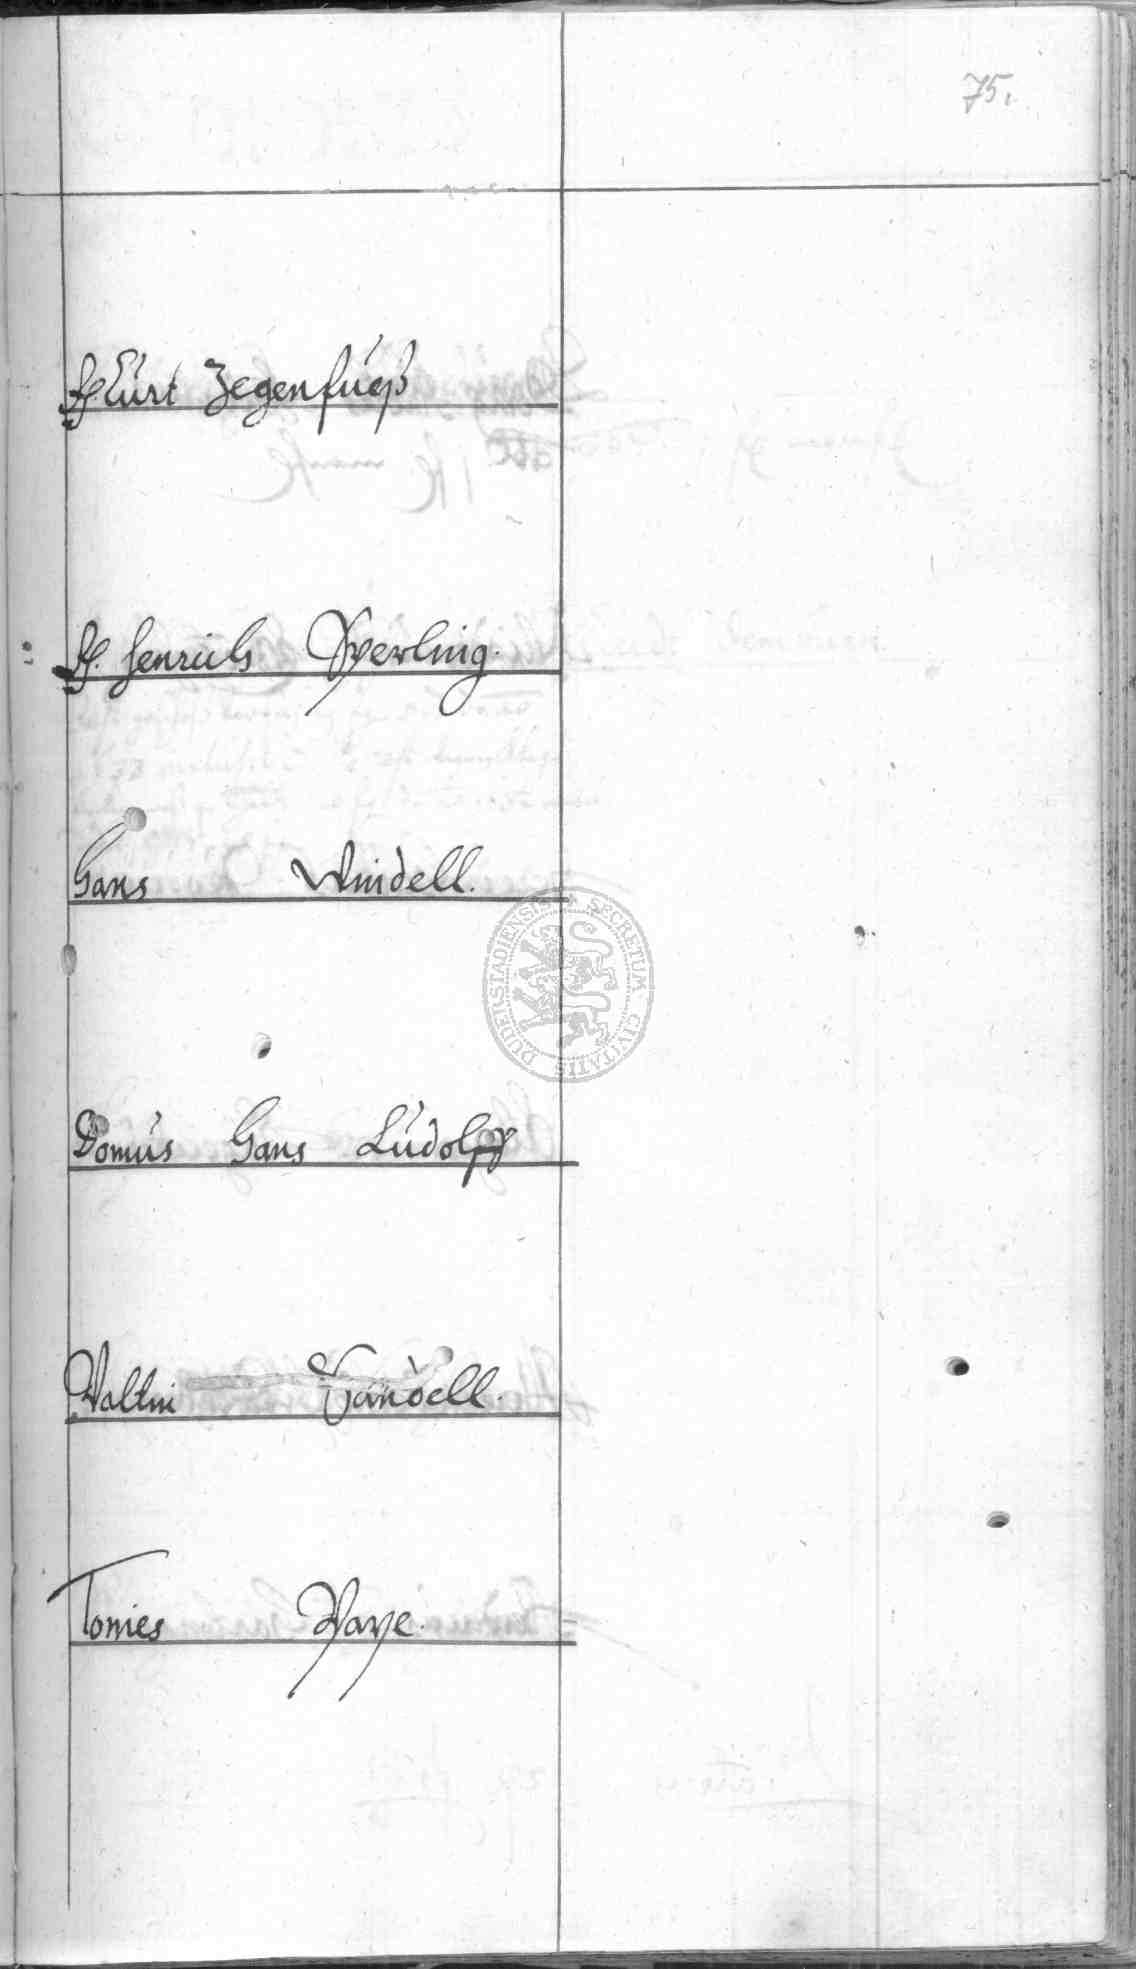 75.
H Curt Zegenfueß
H. Henrich Sperling.
Hans Windell.
Domus Hans Ludolff
Valtin Vandell.
Tonies Waye.
SECRETUM CIVITATIS DUDERSTADIENSIS